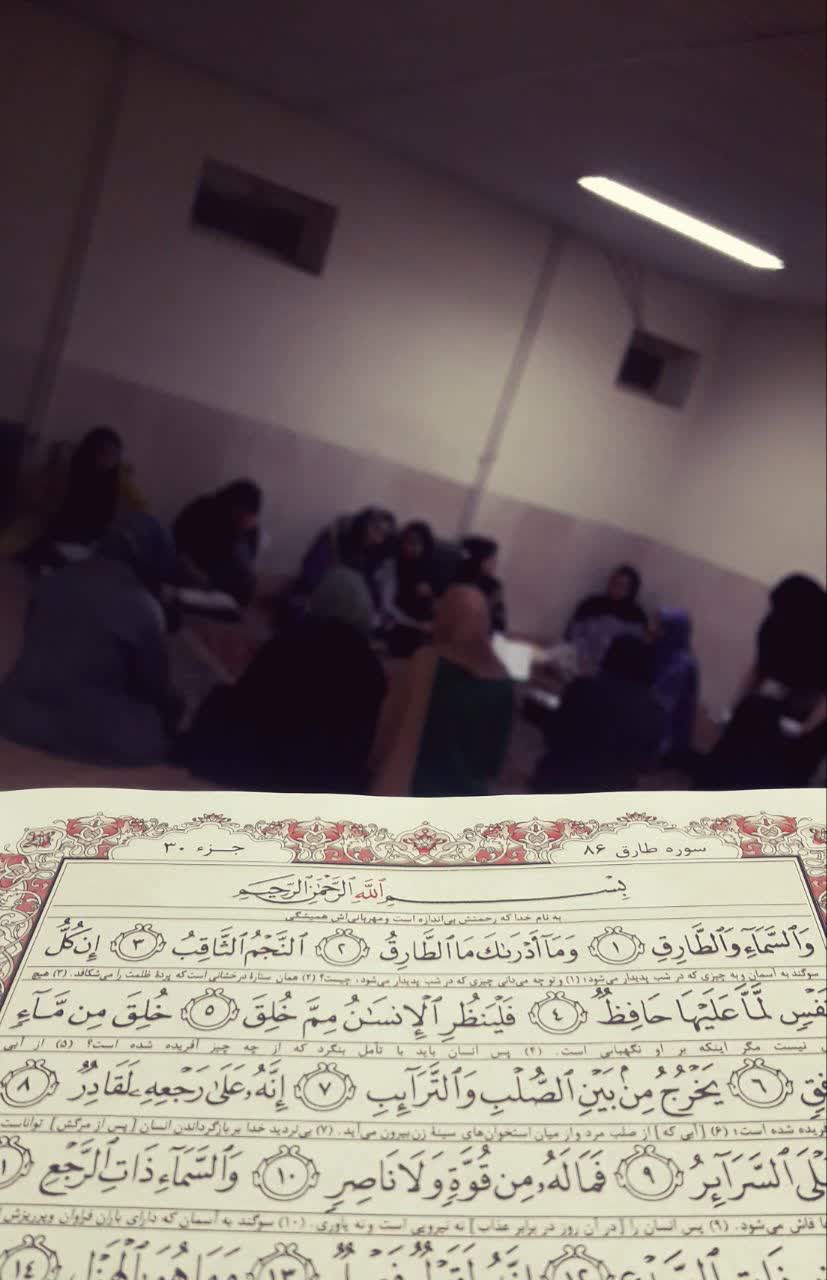 سوره طارق ۸۶
جـزء ۳۰
بِسْمِ ٱللَّهِ ٱلرَّحْمَٰنِ ٱلرَّحِيمِ
به نام خدا که رحمتش بی‌اندازه است و مهربانی‌اش همیشگی
وَٱلسَّمَآءِ وَٱلطَّارِقِ ۝١ وَمَآ أَدْرَىٰكَ مَا ٱلطَّارِقُ ۝٢ ٱلنَّجْمُ ٱلثَّاقِبُ ۝٣ إِن كُلُّ
سوگند به آسمان و به چیزی که در شب پدیدار می‌شود؛ (۱) و تو چه می‌دانی چیزی که در شب پدیدار می‌شود، چیست؟ (۲) همان ستارۀ درخشانی است که پردۀ ظلمت را می‌شکافد. (۳) هیچ
نَفْسٍ لَّمَّا عَلَيْهَا حَافِظٌ ۝٤ فَلْيَنظُرِ ٱلْإِنسَٰنُ مِمَّ خُلِقَ ۝٥ خُلِقَ مِن مَّآءٍ
نیست مگر اینکه بر او نگهبانی است. (۴) پس انسان باید با تأمل بنگرد که از چه چیز آفریده شده است؟ (۵) از آبی
۝٦ يَخْرُجُ مِنۢ بَيْنِ ٱلصُّلْبِ وَٱلتَّرَآئِبِ ۝٧ إِنَّهُۥ عَلَىٰ رَجْعِهِۦ لَقَادِرٌ ۝٨
آفریده شده است؛ (۶) [آبی که] از صلب مرد و از میان استخوان‌های سینۀ زن بیرون می‌آید. (۷) بی‌تردید خدا بر بازگرداندن انسان [پس از مرگش] تواناست
ٱلسَّرَآئِرُ ۝٩ فَمَا لَهُۥ مِن قُوَّةٍ وَلَا نَاصِرٍ ۝١٠ وَٱلسَّمَآءِ ذَاتِ ٱلرَّجْعِ
فاش می‌شود. (۹) پس انسان را [در آن روز در برابر عذاب] نه نیرویی است و نه یاوری. (۱۰) سوگند به آسمان که دارای باران فراوان و پرریزش
۝١٢ إِنَّهُۥ لَقَوْلٌ فَصْلٌ ۝١٣ وَمَا هُوَ بِٱلْهَزْلِ ۝١٤